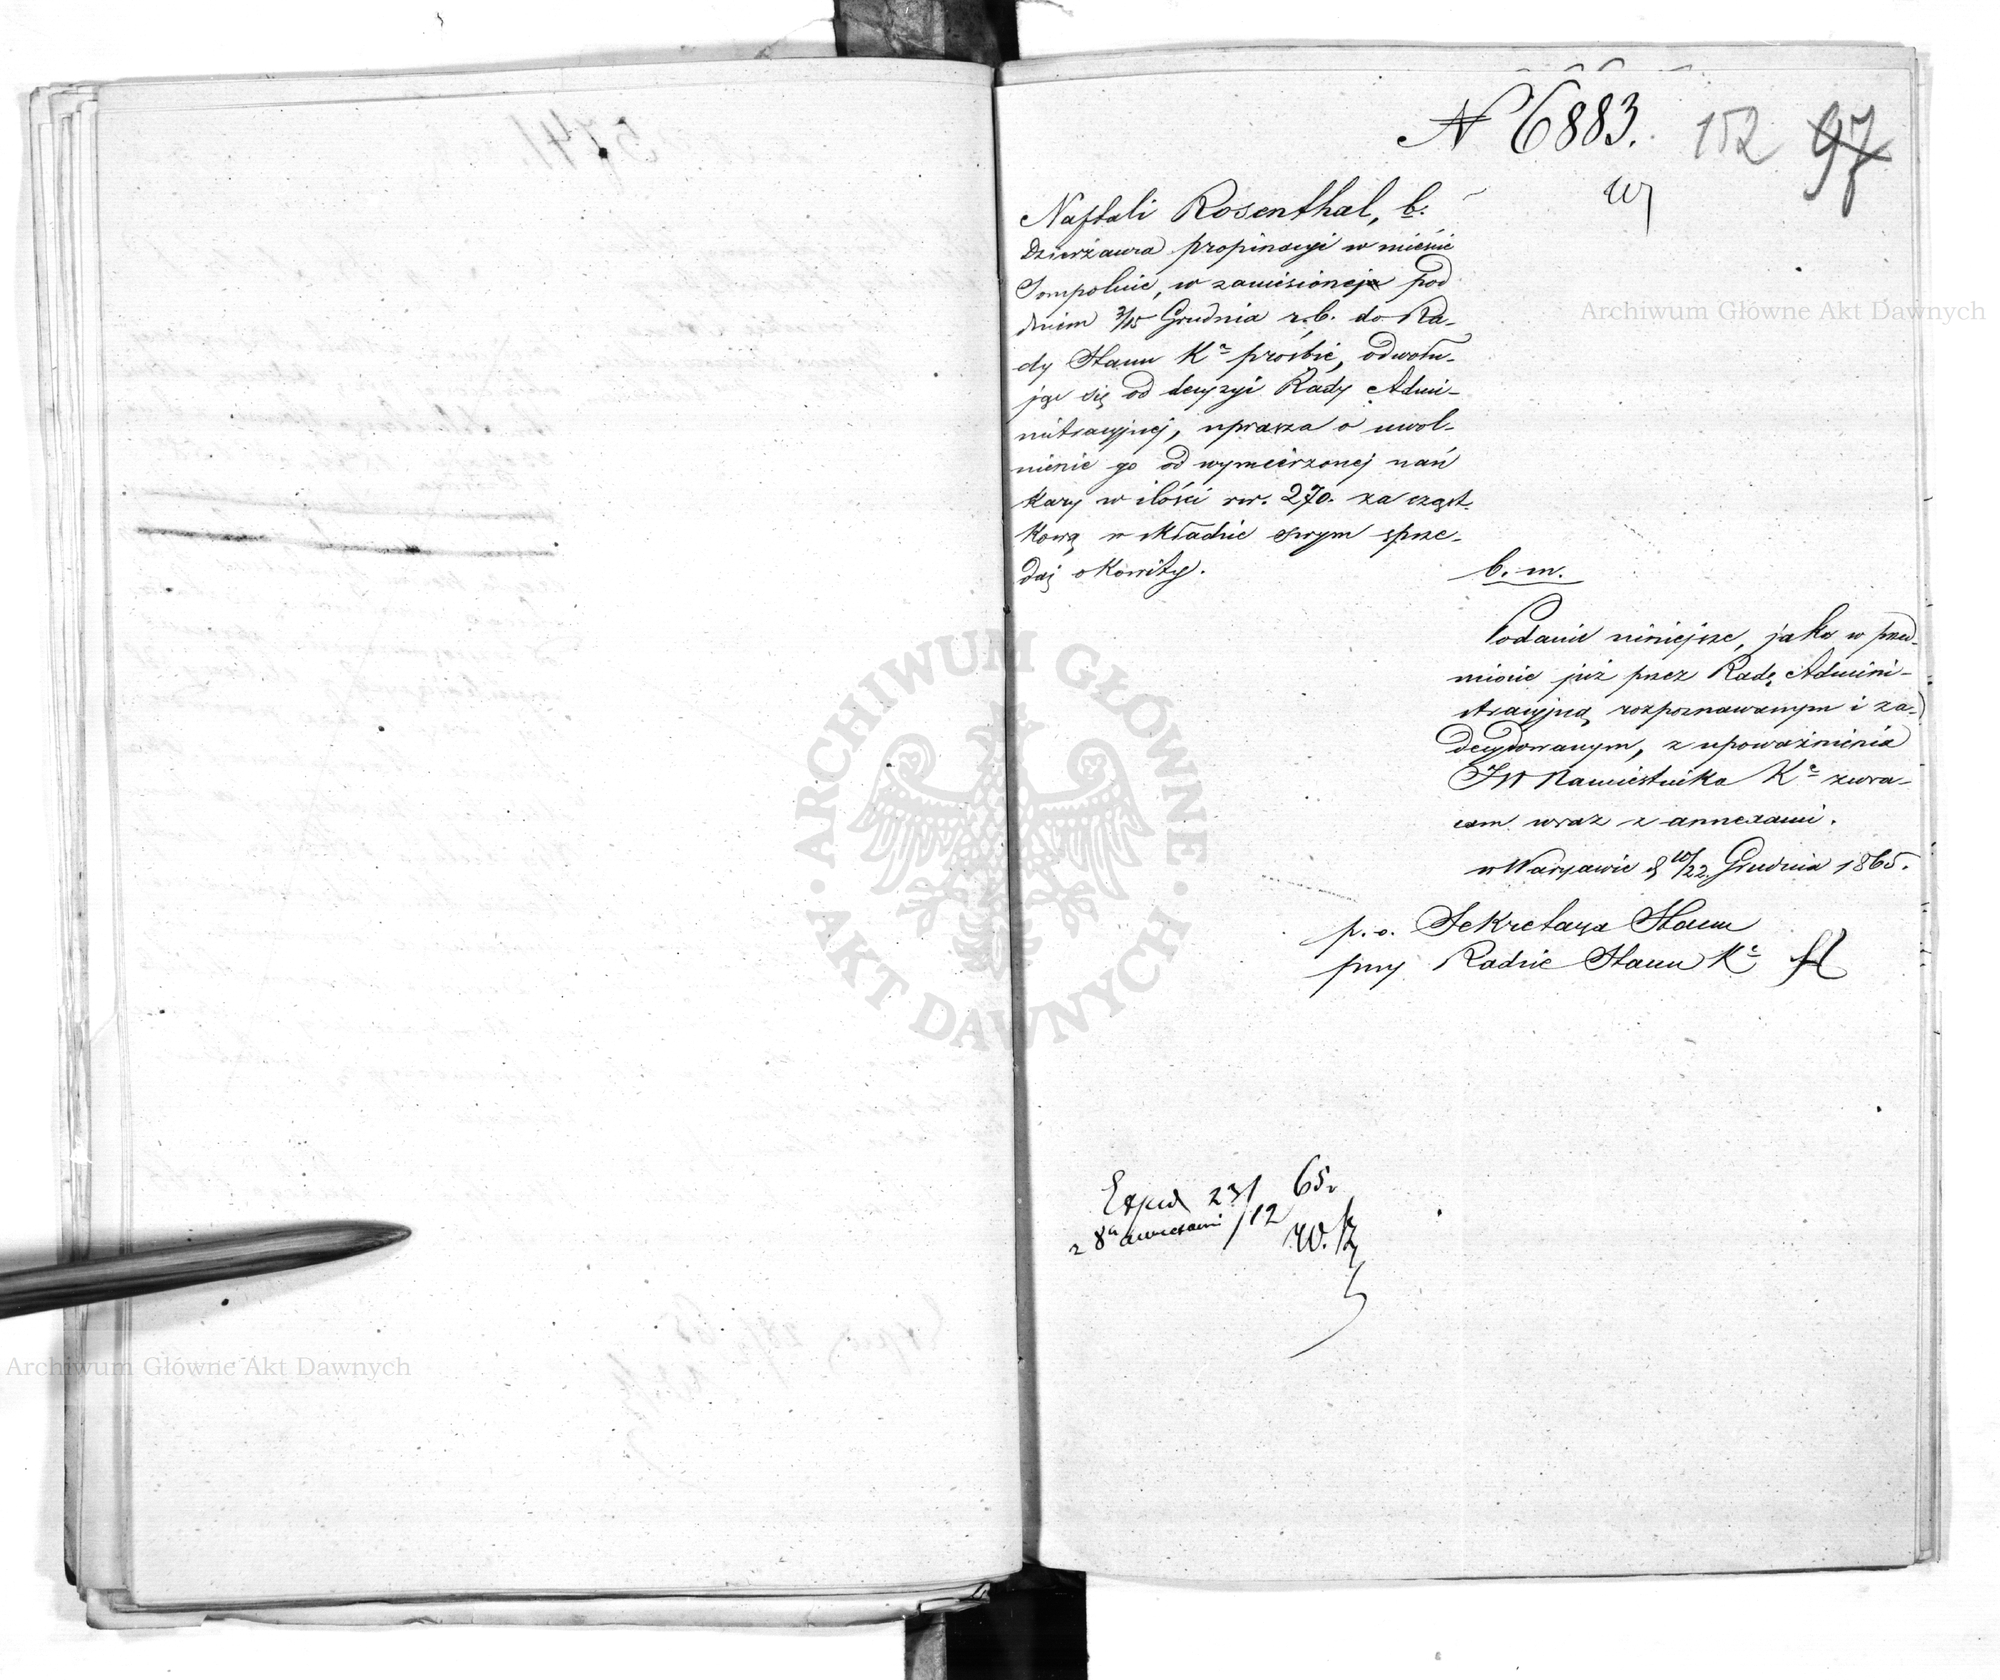 N 6883. 152 97
Naftali Rosenthal, b.
Dzierżawca propinacyi w mieście
Sompolnie, w zaniesionej pod
dniem 3/15 Grudnia r.b. do Ra-
dy Stanu K° prośbie, odwołu-
jąc się od decyzyi Rady Admi-
nistracyjnej, uprasza o uwol-
nienie go od wymierzonej nań
kary w ilości rsr. 270. za cząst-
kową w składzie swym sprze-
daż okowity.
b. m.
Podanie niniejsze, jako w przed-
miocie już przez Radę Admini-
stracyjną rozpoznawanym i za-
decydowanym, z upoważnienia
JW Namiestnika K° zwra-
cam wraz z annexami.
w Warszawie d 10/22 Grudnia 1865.
p. o. Sekretarza Stanu
przy Radzie Stanu K°
Exped 23/12 65.
z 8u annexami
Archiwum Główne Akt Dawnych
Archiwum Główne Akt Dawnych
ARCHIWUM GŁÓWNE
AKT DAWNYCH